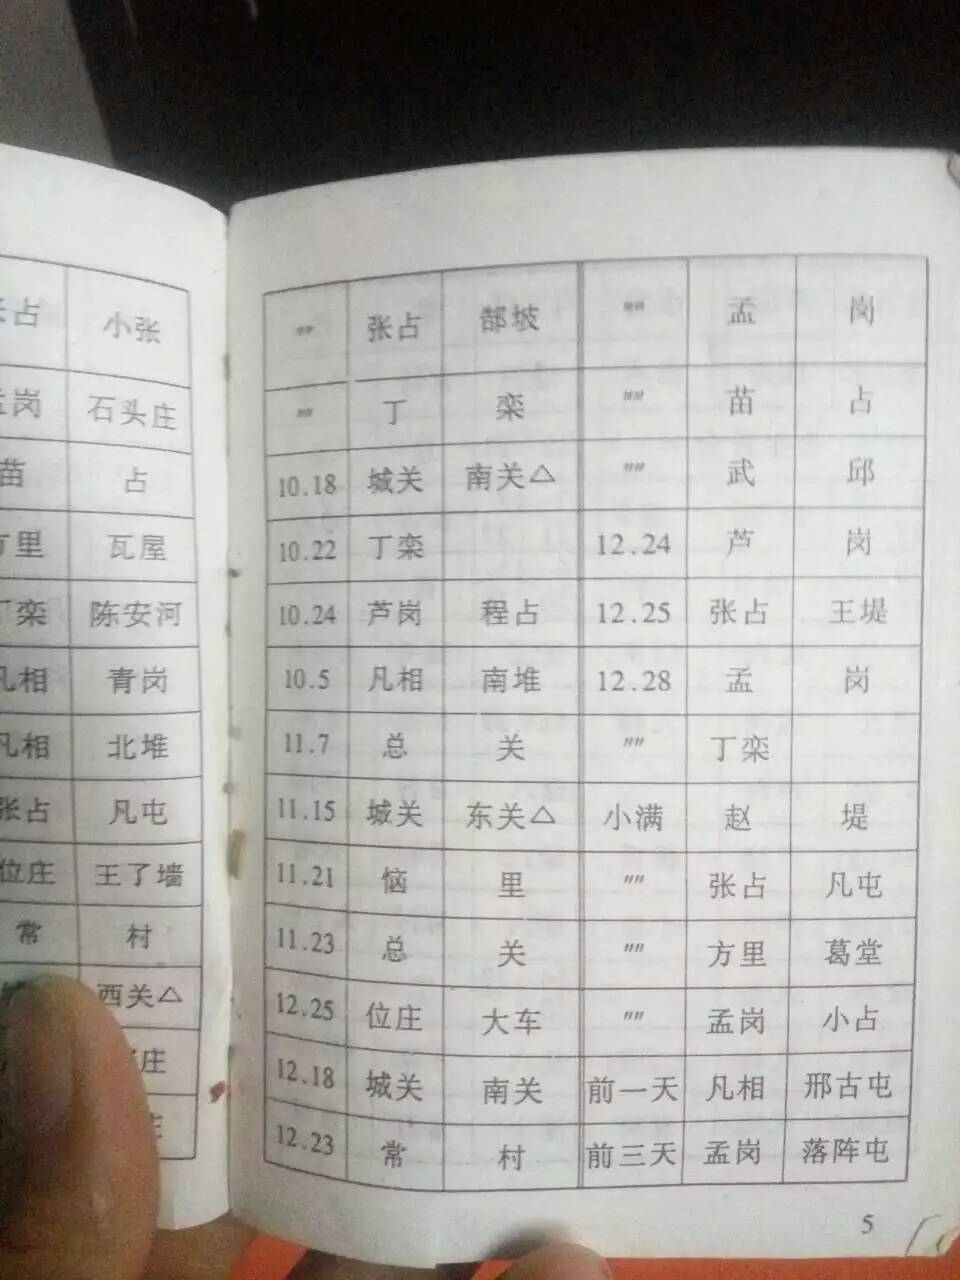 小张
石头庄
苗 占
瓦屋
陈安河
凡相 青岗
凡相 北堆
张占 凡屯
位庄 王了墙
常 村
西关△
〃 张占 郜坡 〃〃 孟 岗
〃 丁 栾 〃〃 苗 占
10.18 城关 南关△ 〃〃 武 邱
10.22 丁栾 12.24 芦 岗
10.24 芦岗 程占 12.25 张占 王堤
10.5 凡相 南堆 12.28 孟 岗
11.7 总 关 〃〃 丁栾
11.15 城关 东关△ 小满 赵 堤
11.21 恼 里 〃〃 张占 凡屯
11.23 总 关 〃〃 方里 葛堂
12.25 位庄 大车 〃〃 孟岗 小占
12.18 城关 南关 前一天 凡相 邢古屯
12.23 常 村 前三天 孟岗 落阵屯
5